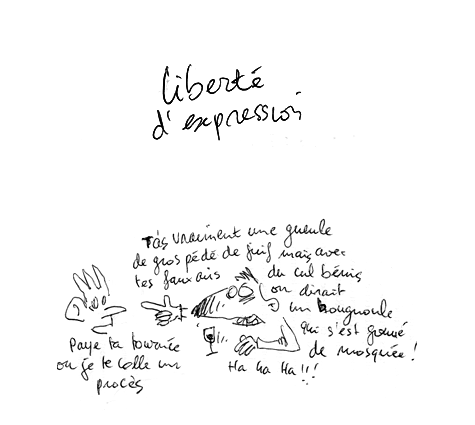 liberté
d'expression
T'as vraiment une gueule
de gros pédé de juif mais avec
tes faux airs de cul bénis
on dirait
un bougnoule
qui s'est gouré
de mosquée !
Ha ha Ha !!!
Paye ta tournée
ou je te colle un
procès